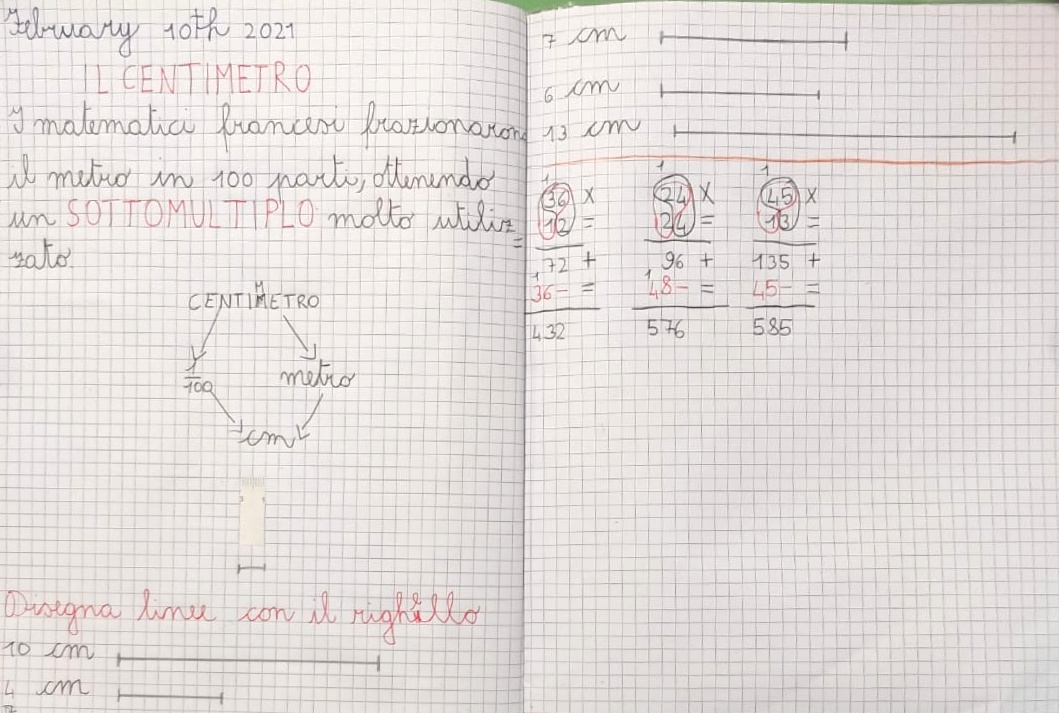 February 10th 2021
IL CENTIMETRO
I matematici francesi frazionarono
il metro in 100 parti, ottenendo
un SOTTOMULTIPLO molto utiliz=
zato
CENTIMETRO
1/100 metro
cm
Disegna linee con il righello
10 cm
4 cm
7 cm
6 cm
13 cm
1 1 1
36 x 24 x 45 x
12 = 24 = 13 =
72 + 96 + 135 +
1 1
36- = 48- = 45- =
432 576 585